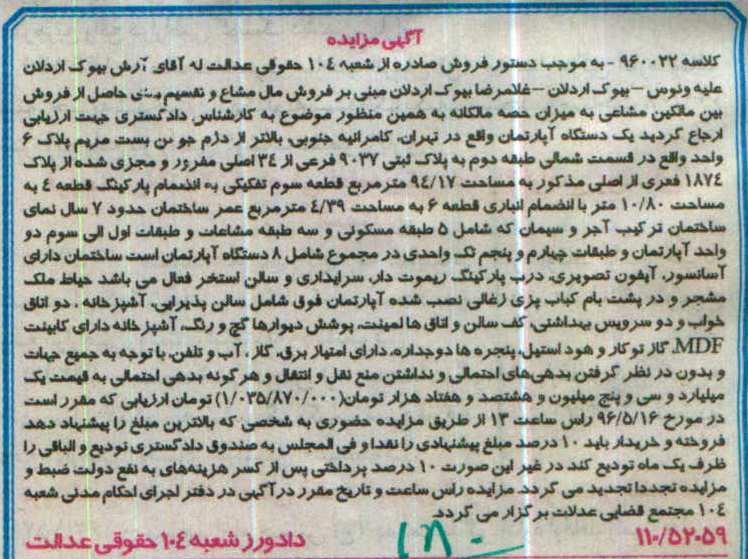 آگهی مزایده
کلاسه ۹۶۰۰۲۲ - به موجب دستور فروش صادره از شعبه ۱۰۴ حقوقی عدالت له آقای آرش بیوک اردلان
علیه ونوس – بیوک اردلان – غلامرضا بیوک اردلان مبنی بر فروش مال مشاع و تقسیم حاصل از فروش
بین مالکین مشاعی به میزان حصه مالکانه به همین منظور موضوع به کارشناس دادگستری جهت ارزیابی
ارجاع گردید یک دستگاه آپارتمان واقع در تهران، کامرانیه جنوبی، بالاتر از بن بست مریم پلاک ۶
واحد واقع در قسمت شمالی طبقه دوم به پلاک ثبتی ۹۰۳۷ فرعی از ۳۴ اصلی مفروز و مجزی شده از پلاک
۱۸۷۴ فعری از اصلی مذکور به مساحت ۹۴/۱۷ مترمربع قطعه سوم تفکیکی به انضمام پارکینگ قطعه ۴ به
مساحت ۱۰/۸۰ متر با انضمام انباری قطعه ۶ به مساحت ۴/۳۹ مترمربع عمر ساختمان حدود ۷ سال نمای
ساختمان ترکیب آجر و سیمان که شامل ۵ طبقه مسکونی و سه طبقه مشاعات و طبقات اول الی سوم دو
واحد آپارتمان و طبقات چهارم و پنجم تک واحدی در مجموع شامل ۸ دستگاه آپارتمان است ساختمان دارای
آسانسور، آیفون تصویری، درب پارکینگ ریموت دار، سرایداری و سالن استخر فعال می باشد حیاط ملک
مشجر و در پشت بام کباب پزی زغالی نصب شده آپارتمان فوق شامل سالن پذیرایی، آشپزخانه، دو اتاق
خواب و دو سرویس بهداشتی، کف سالن و اتاق ها لمینت، پوشش دیوارها گچ و رنگ، آشپزخانه دارای کابینت
MDF، گاز توکار و هود استیل، پنجره ها دوجداره، دارای امتیاز برق، گاز، آب و تلفن، با توجه به جمیع جهات
و بدون در نظر گرفتن بدهی های احتمالی و نداشتن منع نقل و انتقال و هر گونه بدهی احتمالی به قیمت یک
میلیارد و سی و پنج میلیون و هشتصد و هفتاد هزار تومان (۱/۰۳۵/۸۷۰/۰۰۰) تومان ارزیابی که مقرر است
در مورخ ۹۶/۵/۱۶ راس ساعت ۱۳ از طریق مزایده حضوری به شخصی که بالاترین مبلغ را پیشنهاد دهد
فروخته و خریدار باید ۱۰ درصد مبلغ پیشنهادی را نقدا و فی المجلس به صندوق دادگستری تودیع و الباقی را
ظرف یک ماه تودیع کند در غیر این صورت ۱۰ درصد پرداختی پس از کسر هزینه‌های به نفع دولت ضبط و
مزایده تجددا تجدید می گردد. مزایده راس ساعت و تاریخ مقرر در آگهی در دفتر اجرای احکام مدنی شعبه
۱۰۴ مجتمع قضایی عدلات برگزار می گردد.
۱۱۰/۵۲۰۵۹ دادورز شعبه ۱۰۴ حقوقی عدالت